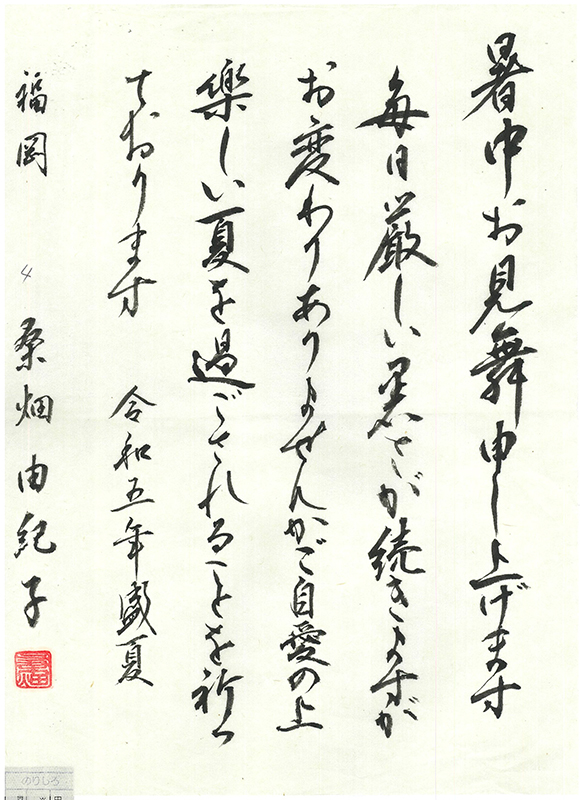 暑中お見舞申し上げます
毎日厳しい暑さが続きますが
お変わりありませんかご自愛の上
楽しい夏を過ごされることを祈っ
ております
令和五年盛夏
福岡 4 桑畑由紀子
のりしろ